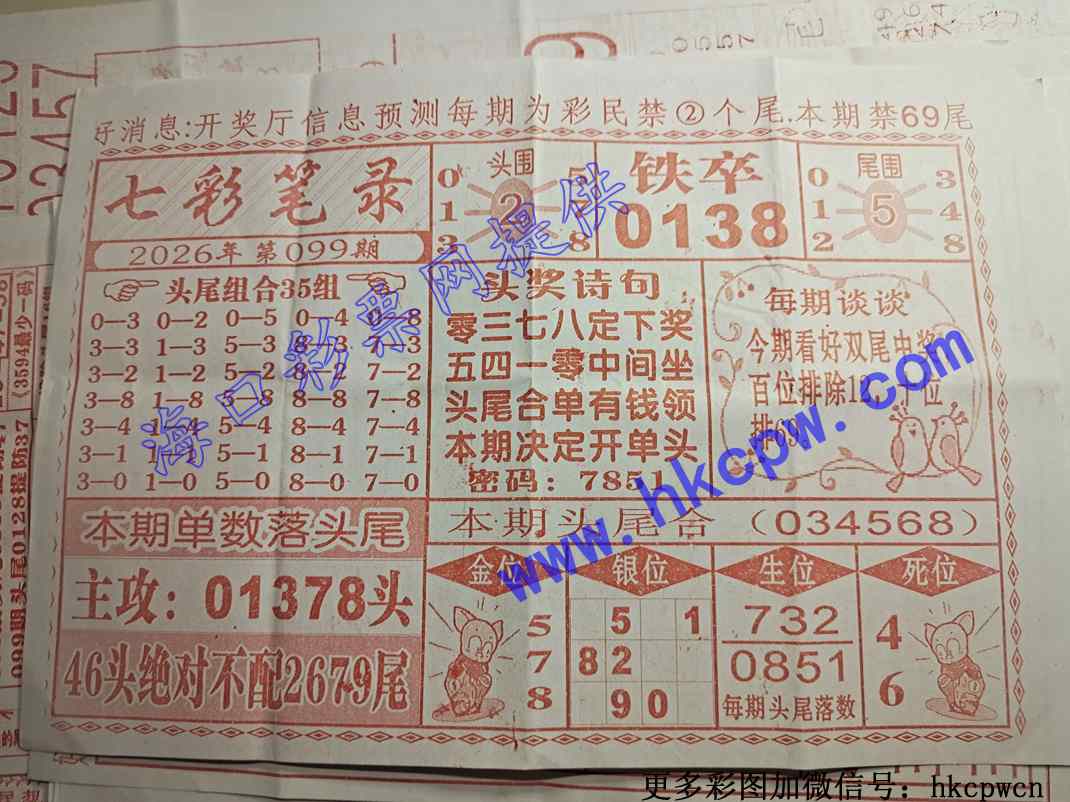 好消息:开奖厅信息预测每期为彩民禁②个尾.本期禁69尾
七彩笔录
2026年第099期
头围
0
1
3
2
5
8
铁卒
0138
尾围
0
1
2
5
3
4
8
头尾组合35组
0—3 0—2 0—5 0—4 0—8
3—3 1—3 5—3 8—3 7—3
3—2 1—2 5—2 8—2 7—2
3—8 1—8 5—8 8—8 7—8
3—4 1—4 5—4 8—4 7—4
3—1 1—1 5—1 8—1 7—1
3—0 1—0 5—0 8—0 7—0
头奖诗句
零三七八定下奖
五四一零中间坐
头尾合单有钱领
本期决定开单头
密码：7851
每期谈谈
今期看好双尾中奖
百位排除
位
排69
本期单数落头尾
本期头尾合（034568）
主攻：01378头
46头绝对不配2679尾
金位
5
7
8
银位
5 1
82
90
生位
732
0851
每期头尾落数
死位
4
6
海口彩票网提供
www.hkcpw.com
更多彩图加微信号：hkcpwcn
23457
《3594最少一码》
099期头尾0128提防37